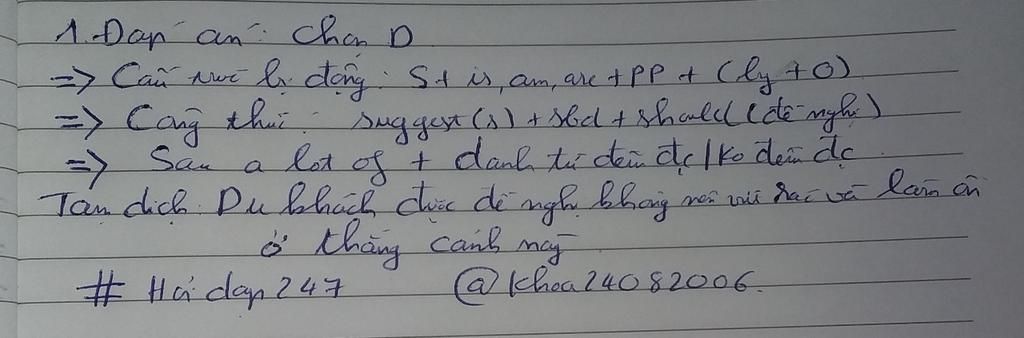 1. Đáp án: Chọn D
=> Cấu trúc bị động: S + is, am, are + PP + (by + O)
=> Công thức: suggest(s) + sbd + should (đề nghị)
=> Sau a lot of + danh từ đếm đc / ko đếm đc
Tạm dịch: Du khách được đề nghị không nên vứt rác và làm ồn
ở thắng cảnh này
# Hoidap247 @khoa24082006.